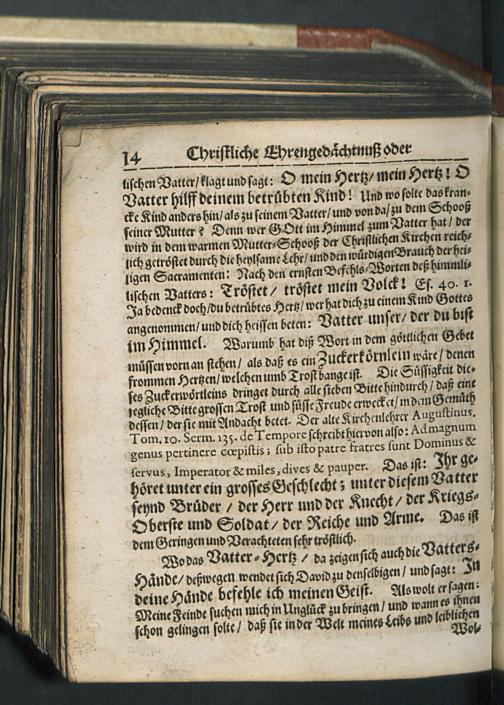 14 Christliche Ehrengedächtnuß oder
lischen Vatter/ klagt und sagt: O mein Hertz/ mein Hertz! O
Vatter hilff deinem betrübten Kind! Und wo solte das kran-
cke Kind anders hin/ als zu seinem Vatter/ und von da/ zu dem Schooß
seiner Mutter? Denn wer GOtt im Himmel zum Vatter hat/ der
wird in dem warmen Mutter-Schooß der Christlichen Kirchen reich-
lich getröstet durch die heylsame Lehr/ und den würdigen Brauch der hei-
ligen Sacramenten: Nach den ernsten Befehls-Worten deß himmli-
lischen Vatters: Tröstet/ tröstet mein Volck! Es. 40. 1.
Ja bedenck doch/ du betrübtes Hertz/ wer hat dich zu einem Kind Gottes
angenommen/ und dich heissen beten: Vatter unser/ der du bist
im Himmel. Warumb hat diß Wort in dem göttlichen Gebet
müssen vorn an stehen/ als daß es ein Zuckerkörnlein wäre/ denen
frommen Hertzen/ welchen umb Trost bange ist. Die Süssigkeit die-
ses Zuckerwörtleins dringet durch alle sieben Bitte hindurch/ daß eine
jegliche Bitte grossen Trost und süsse Freude erwecket/ in dem Gemüth
dessen/ der sie mit Andacht betet. Der alte Kirchenlehrer Augustinus,
Tom. 10. Serm. 135. de Tempore schreibt hiervon also: Ad magnum
genus pertinere cœpistis; sub isto patre fratres sunt Dominus &
servus, Imperator & miles, dives & pauper. Das ist: Ihr ge-
höret unter ein grosses Geschlecht; unter diesem Vatter
seynd Brüder/ der Herr und der Knecht/ der Kriegs-
Oberste und Soldat/ der Reiche und Arme. Das ist
dem Geringen und Verachteten sehr tröstlich.
Wo das Vatter-Hertz/ da zeigen sich auch die Vatters-
Hände/ deßwegen wendet sich David zu denselbigen/ und sagt: In
deine Hände befehle ich meinen Geist. Als wolt er sagen:
Meine Feinde suchen mich in Unglück zu bringen/ und wann es ihnen
schon gelingen solte/ daß sie in der Welt meines Leibs und leiblichen
Wol-